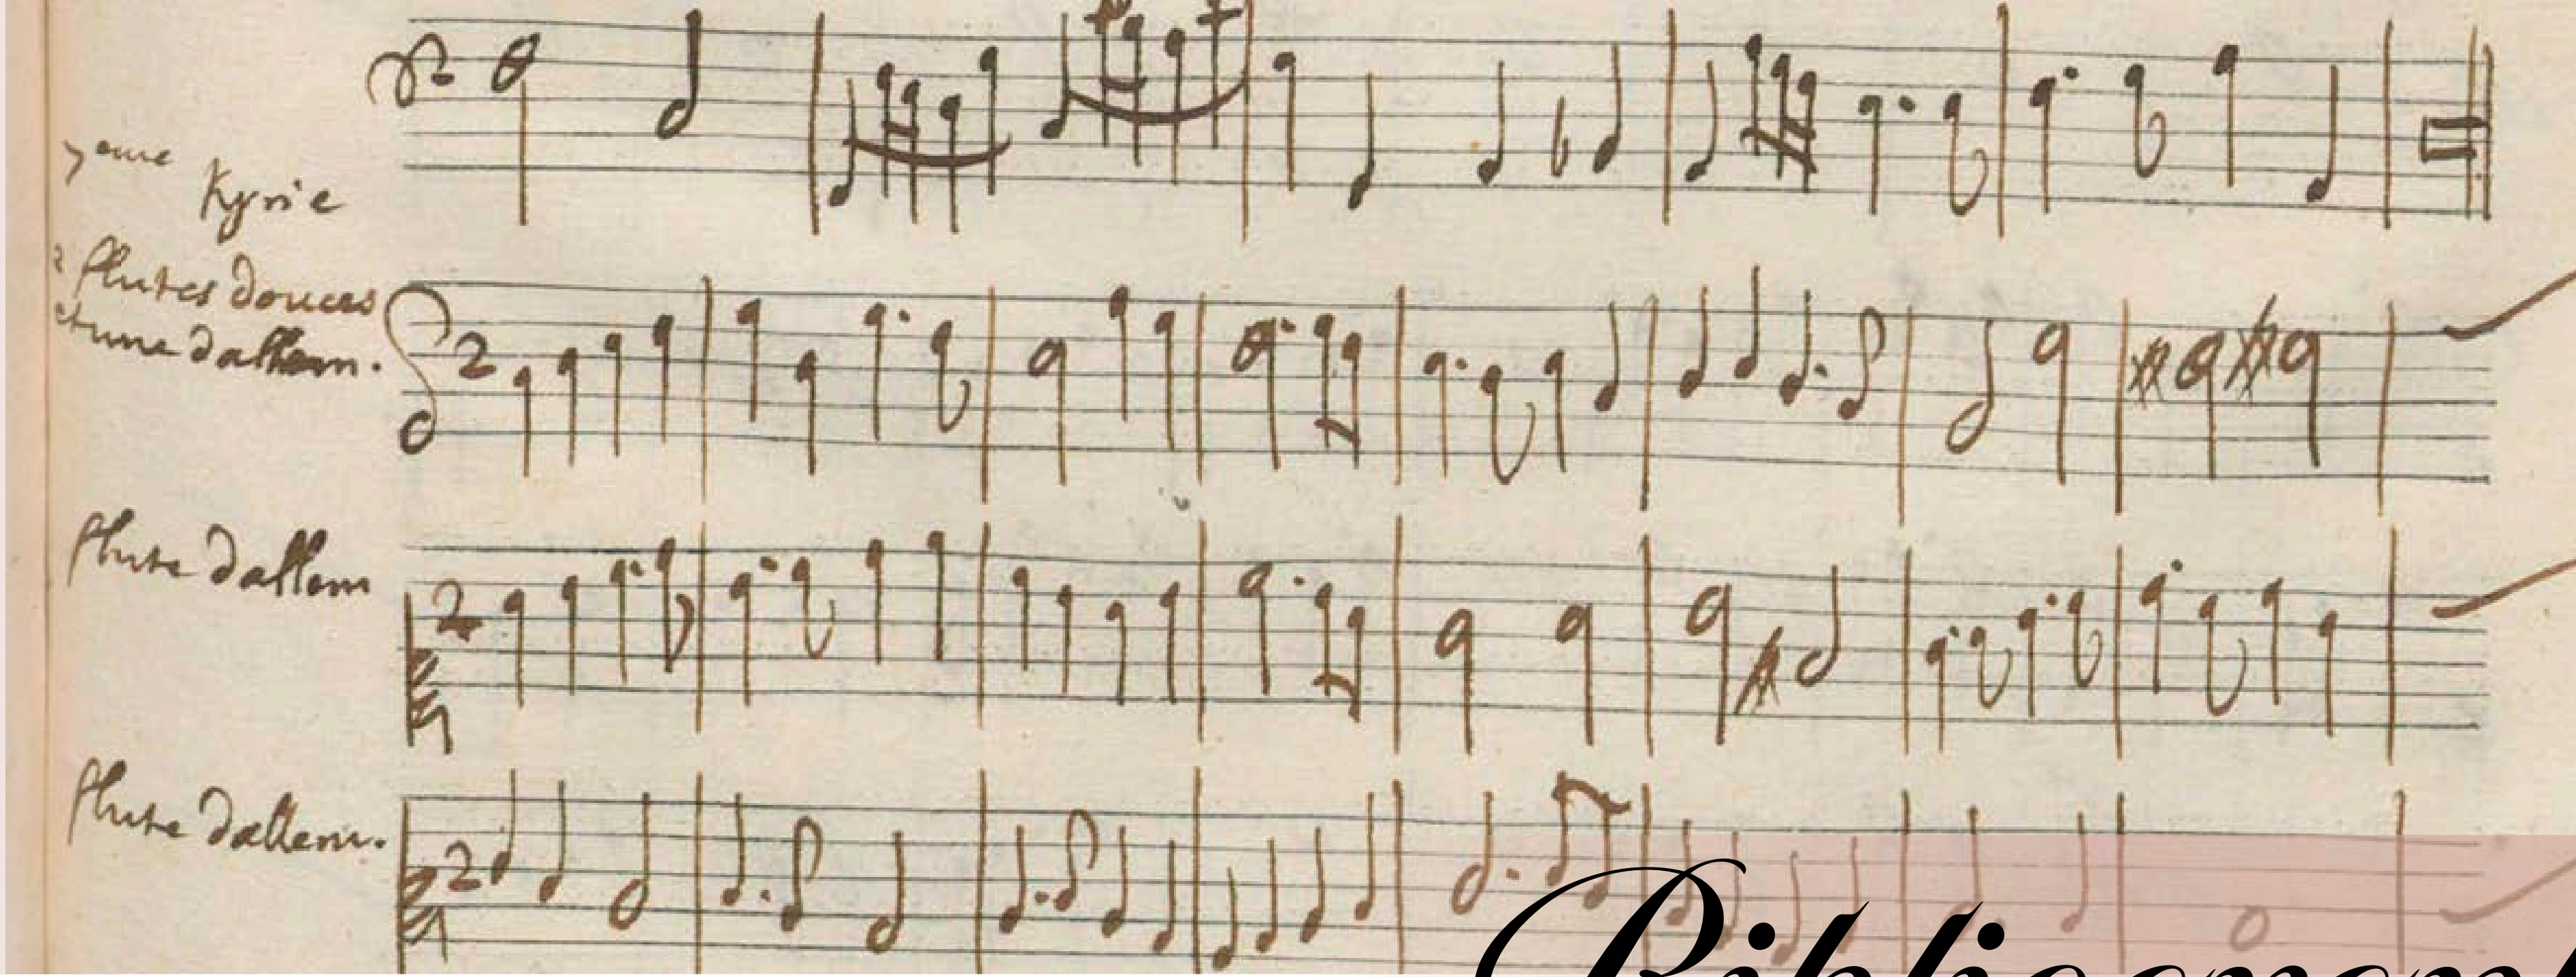 7eme
Kyrie
2 flutes douces
et une dallem.
2
flute dallem
2
flute dallem.
2